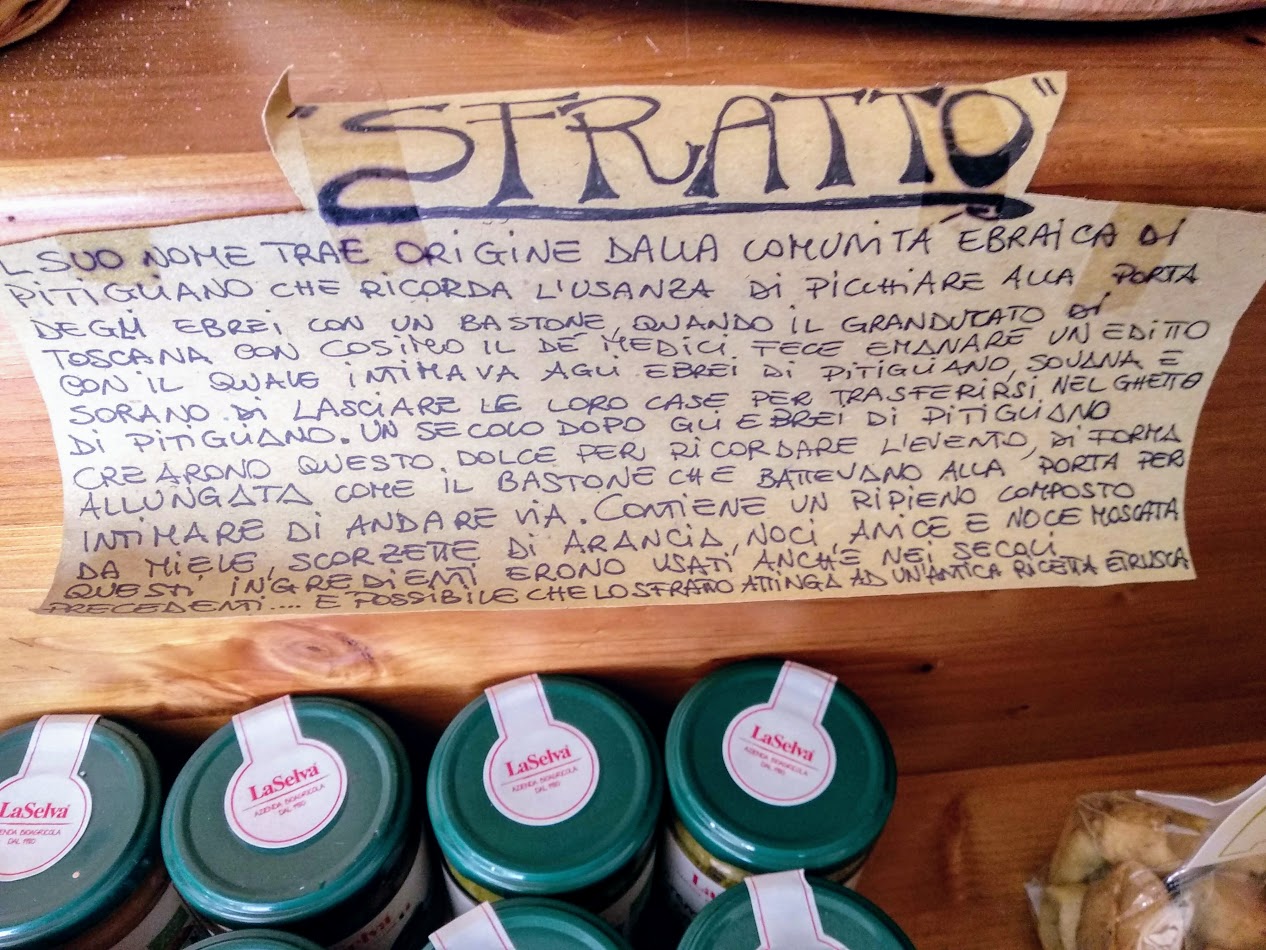 "SFRATTO"
L SUO NOME TRAE ORIGINE DALLA COMUNITÀ EBRAICA DI
PITIGLIANO CHE RICORDA L'USANZA DI PICCHIARE ALLA PORTA
DEGLI EBREI CON UN BASTONE, QUANDO IL GRANDUCATO DI
TOSCANA CON COSIMO II DE' MEDICI FECE EMANARE UN EDITTO
CON IL QUALE INTIMAVA AGLI EBREI DI PITIGLIANO, SOVANA E
SORANO DI LASCIARE LE LORO CASE PER TRASFERIRSI NEL GHETTO
DI PITIGLIANO. UN SECOLO DOPO GLI EBREI DI PITIGLIANO
CREARONO QUESTO DOLCE PER RICORDARE L'EVENTO, DI FORMA
ALLUNGATA COME IL BASTONE CHE BATTEVANO ALLA PORTA PER
INTIMARE DI ANDARE VIA. CONTIENE UN RIPIENO COMPOSTO
DA MIELE, SCORZETTE DI ARANCIA, NOCI, ANICE E NOCE MOSCATA
QUESTI INGREDIENTI ERONO USATI ANCHE NEI SECOLI
PRECEDENTI.... E POSSIBILE CHE LO SFRATTO ATTINGA AD UN'ANTICA RICETTA ETRUSCA
LaSelva
AZIENDA BIOAGRICOLA
DAL 1980
LaSelva
AZIENDA BIOAGRICOLA
DAL 1980
LaSelva
AZIENDA BIOAGRICOLA
DAL 1980
LaSelva
AZIENDA BIOAGRICOLA
DAL 1980